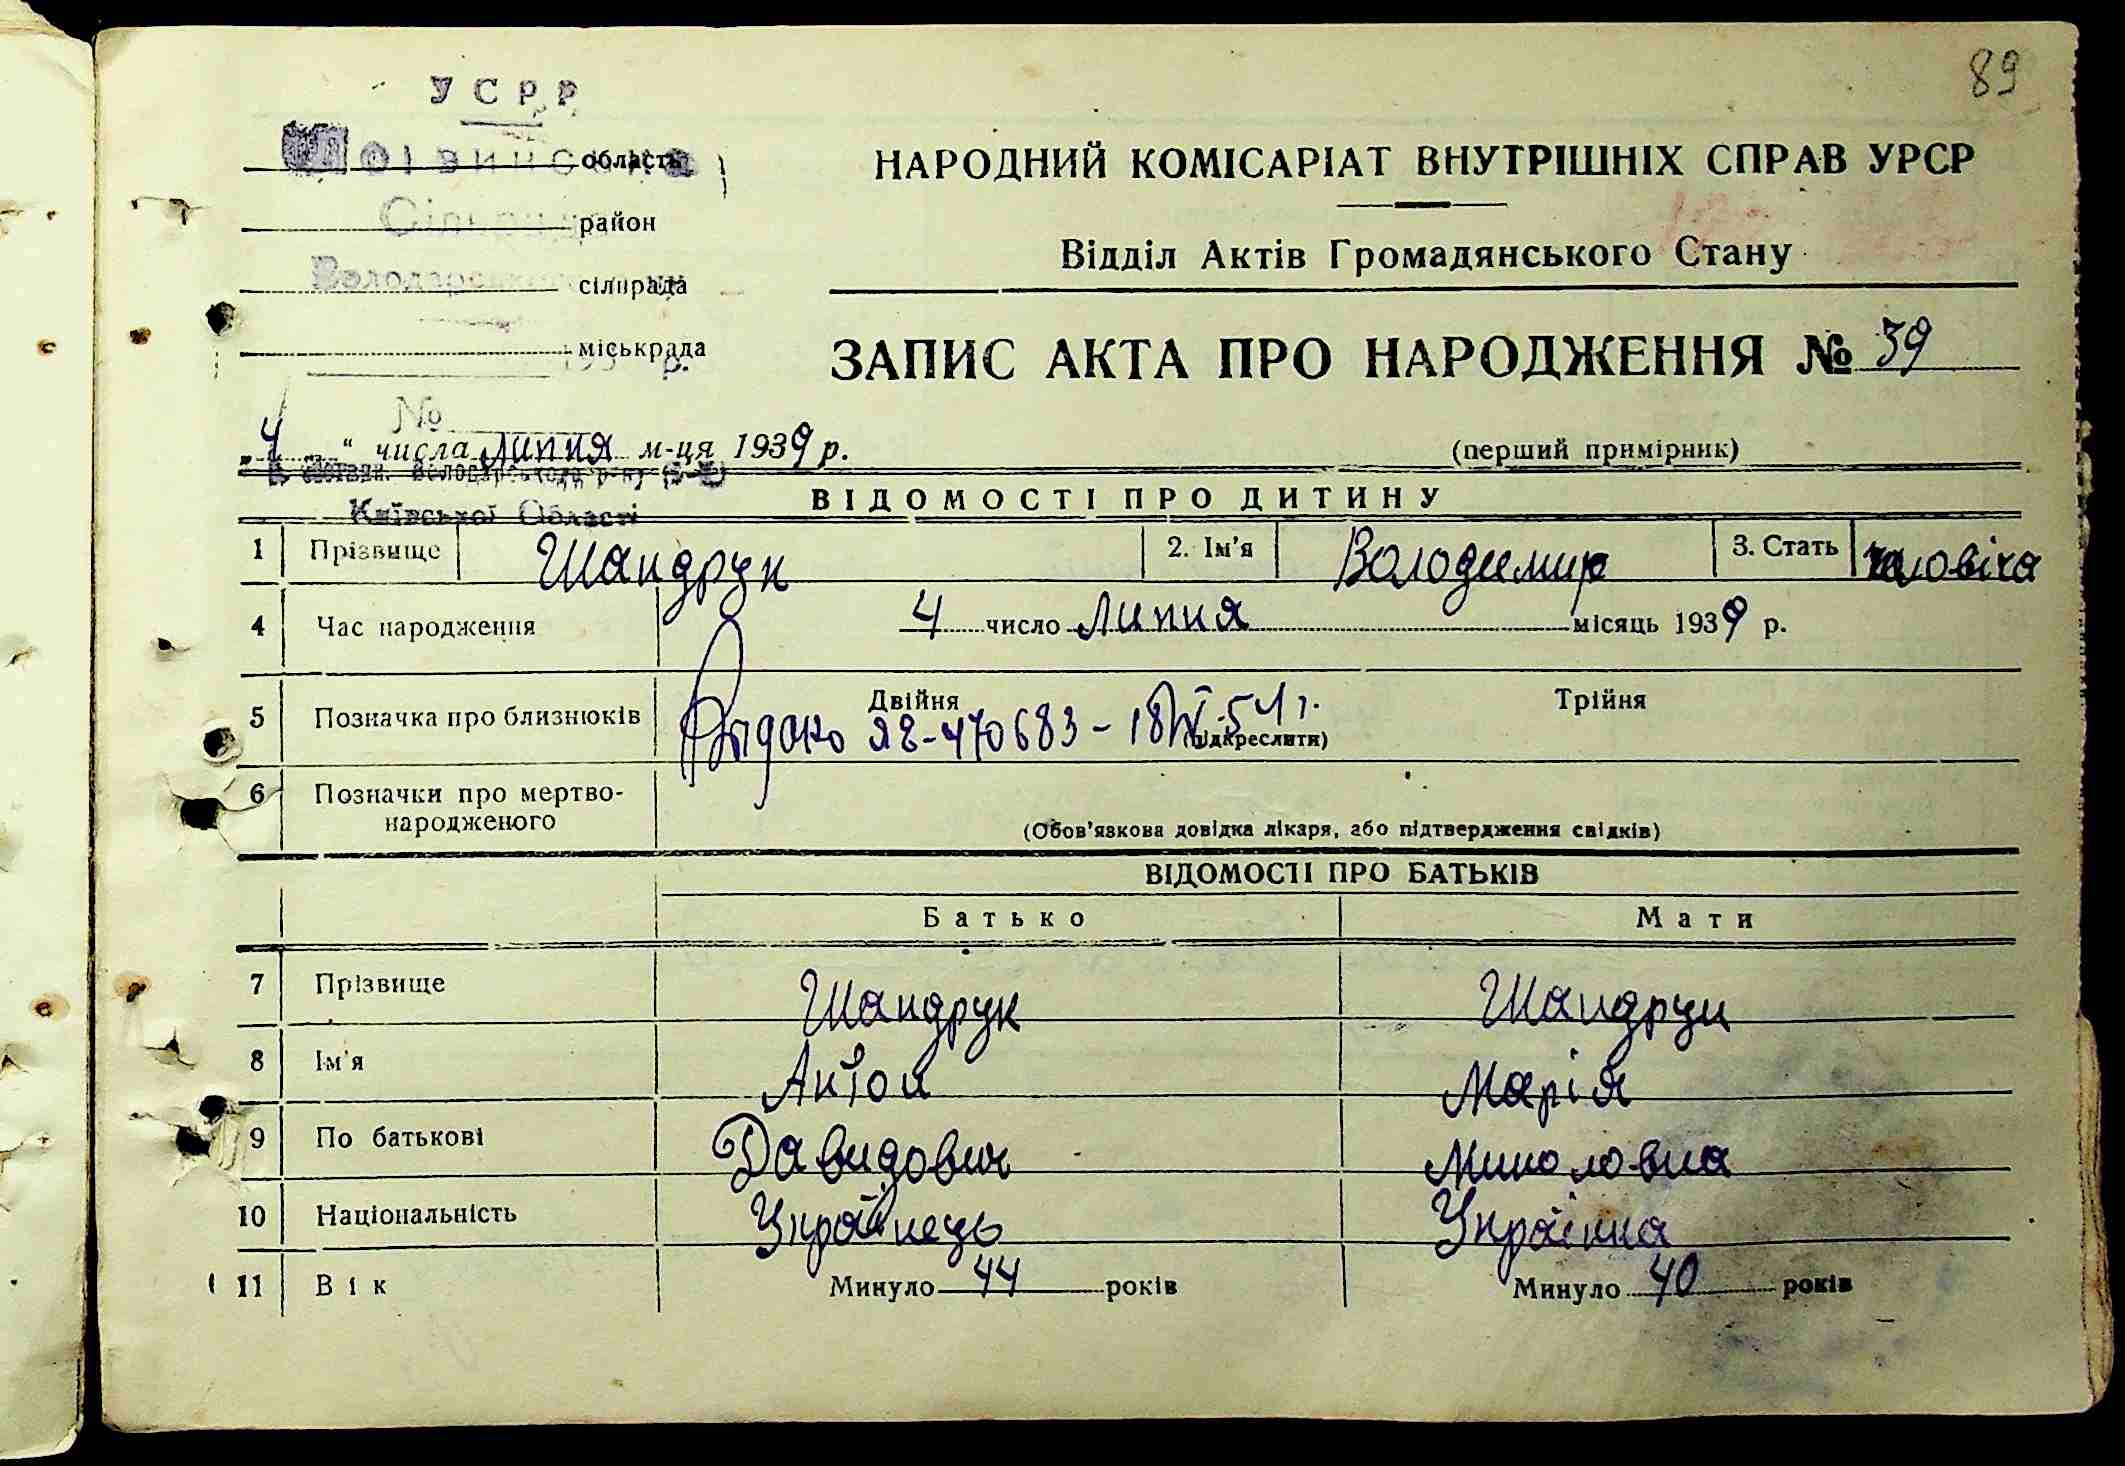 89
УСРР
область
НАРОДНИЙ КОМІСАРІАТ ВНУТРІШНІХ СПРАВ УРСР
район
Відділ Актів Громадянського Стану
Володарськ сілрада
міськрада
ЗАПИС АКТА ПРО НАРОДЖЕННЯ № 39
№
„4“ числа липня м-ця 1939 р.
(перший примірник)
Володарського р-ну
Київської Області
ВІДОМОСТІ ПРО ДИТИНУ
1 Прізвище Шандрук 2. Ім'я Володимир 3. Стать чоловіча
4 Час народження 4 число липня місяць 1939 р.
5 Позначка про близнюків Двійня Трійня
ЯЕ-470683-18 54 г.
(підкреслити)
6 Позначки про мертво-
народженого
(Обов'язкова довідка лікаря, або підтвердження свідків)
ВІДОМОСТІ ПРО БАТЬКІВ
Батько Мати
7 Прізвище Шандрук Шандрук
8 Ім'я Антон Марія
9 По батькові Давидович Миколовна
10 Національність Українець Українка
11 Вік Минуло 44 років Минуло 40 років